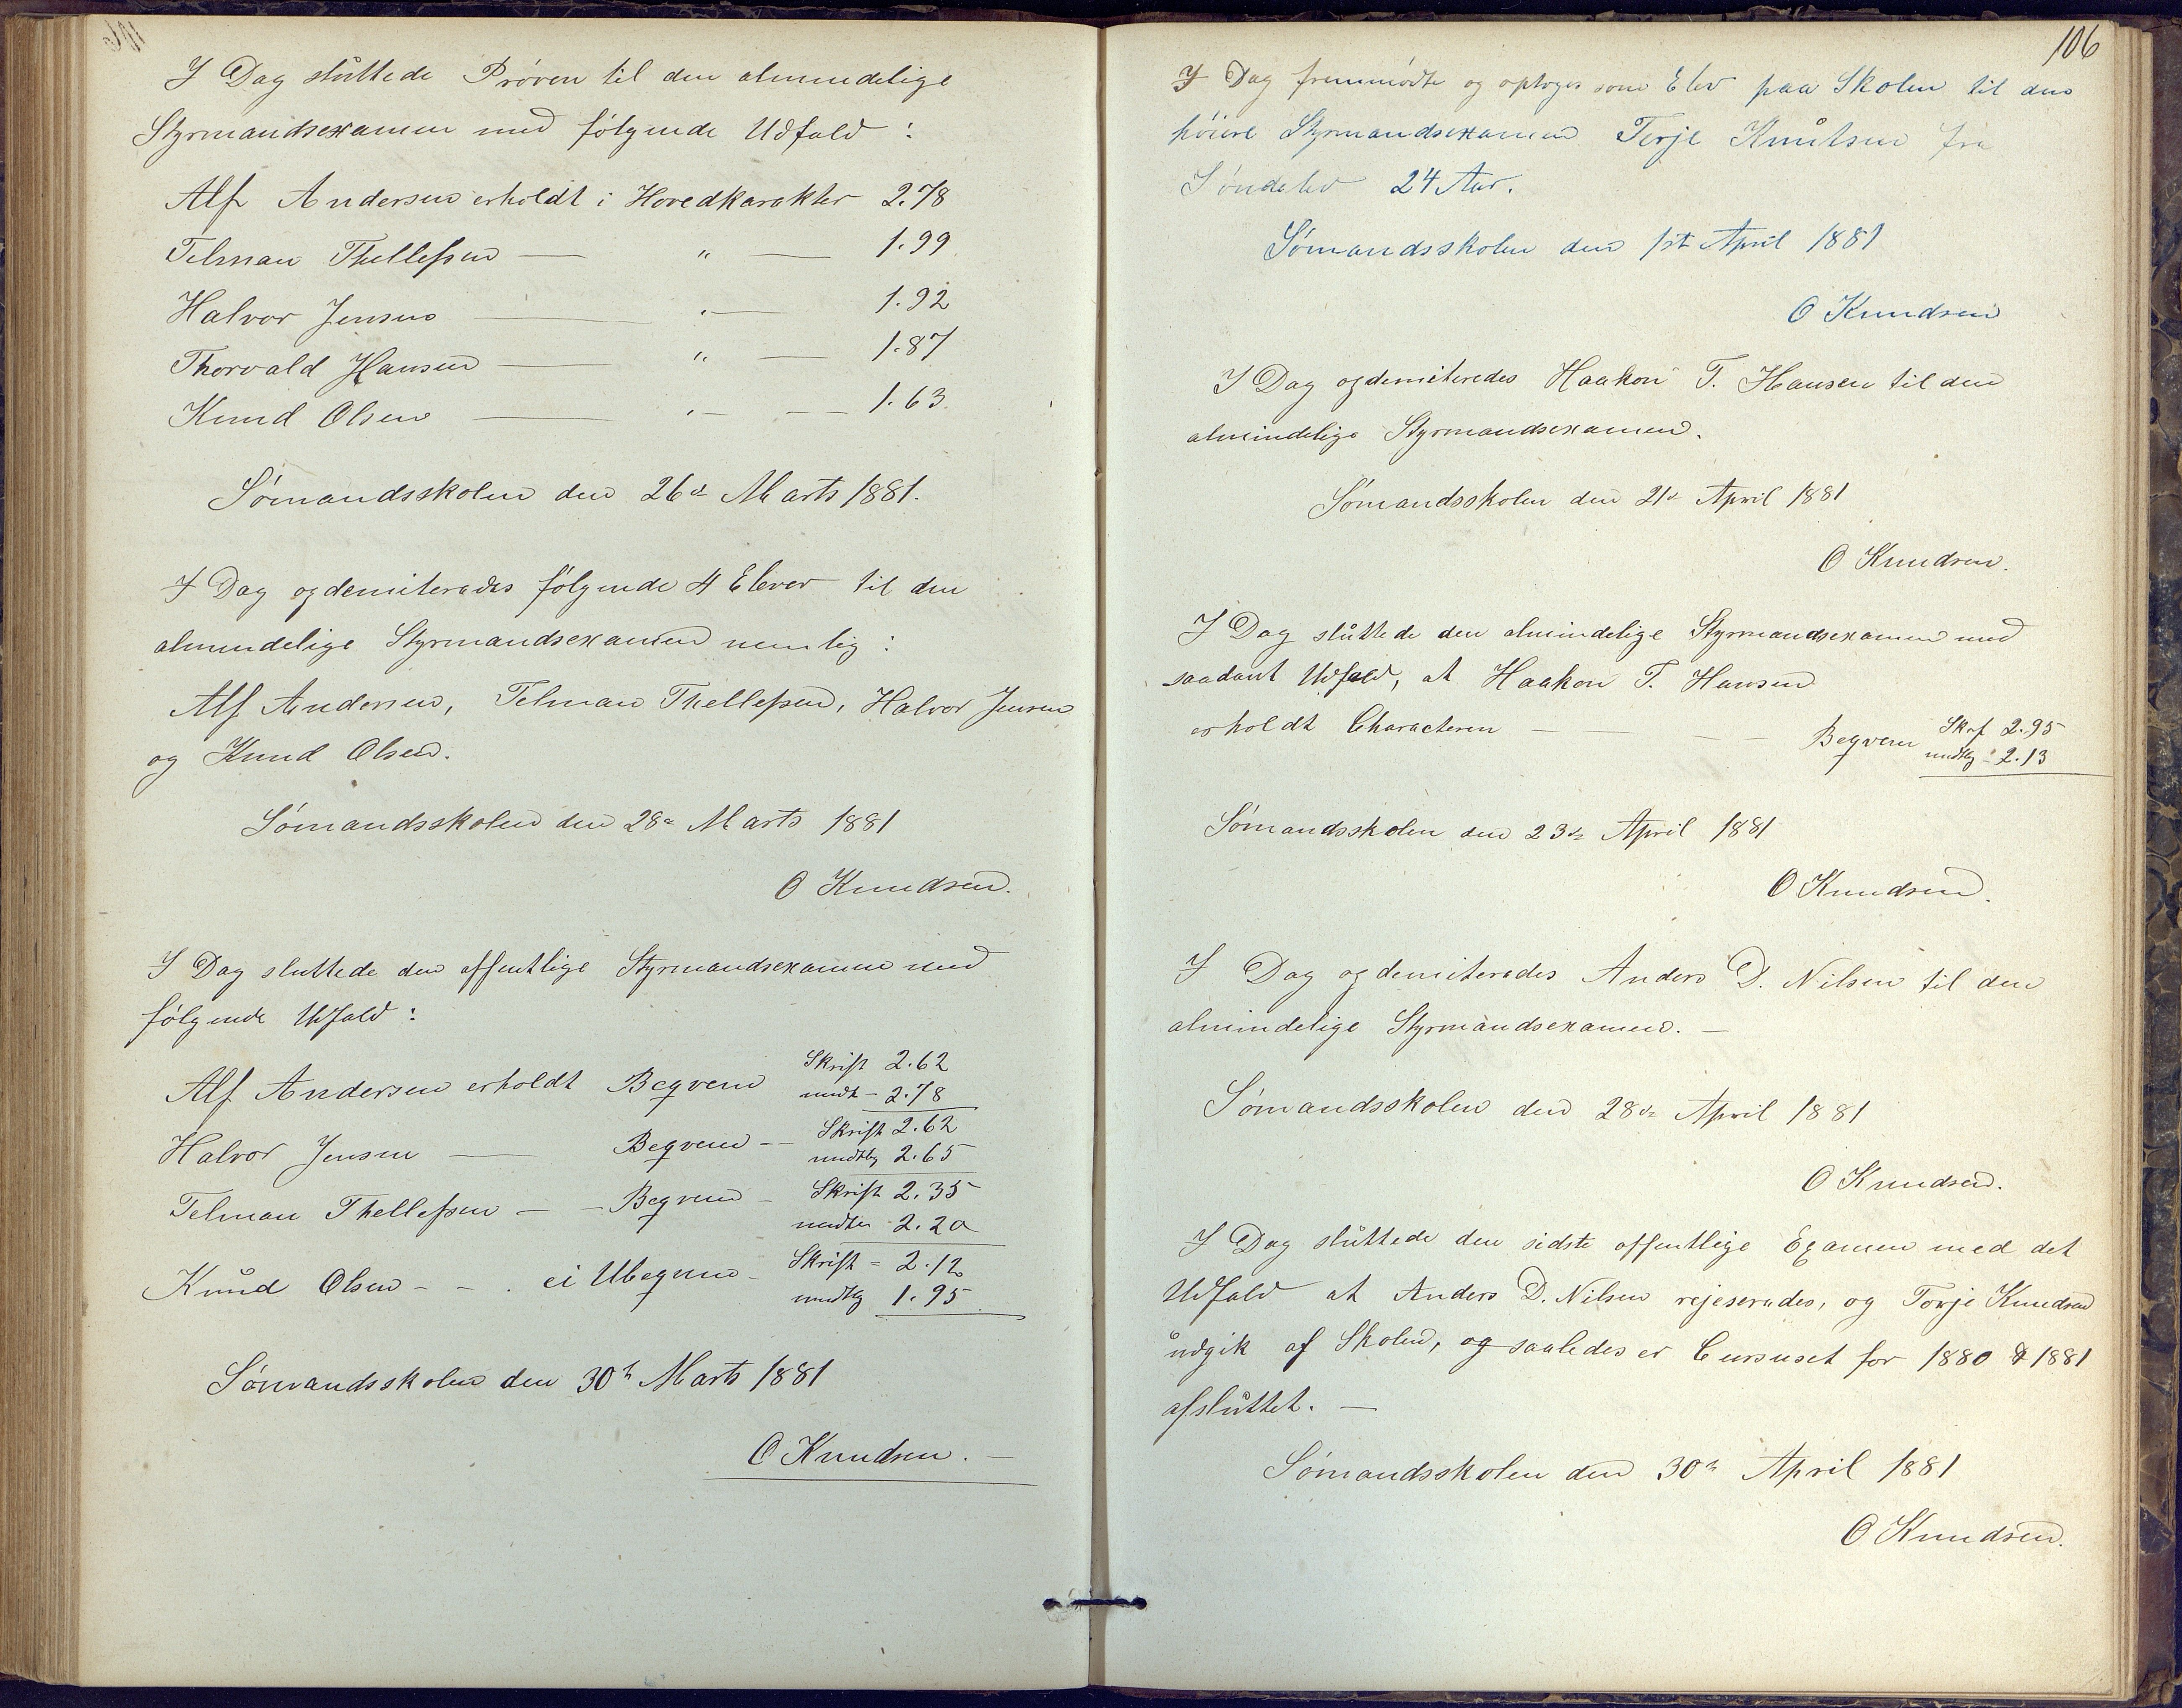 I Dag sluttede Prøven til den almindelige
Styrmandsexamen med følgende Udfald :
Alf Andersen erholdt i Hovedkarakter 2.78
Telman Thellefsen — " — 1.99
Halvor Jensen — " — 1.92
Thorvald Hansen — " — 1.87
Knud Olsen — " — 1.63.
Sømandsskolen den 26de Marts 1881.
I Dag ogdemiterades følgende 4 Elever til den
almindelige Styrmandsexamen nemlig :
Alf Andersen, Telman Thellefsen, Halvor Jensen
og Knud Olsen.
Sømandsskolen den 28de Marts 1881
O Knudsen.
I Dag sluttede den offentlige Styrmandsexamen med
følgende Udfald :
Alf Andersen erholdt Beqvem Skrift 2.62
mundt - 2.78
Halvor Jensen — Beqvem -- Skrift 2.62
mundtlg 2.65
Telman Thellefsen — - Beqvem - Skrift 2.35
mundtl 2.20
Knud Olsen - - . ei Ubeqvem - Skrift - 2.12
mundtlg 1.95
Sømandsskolen den 30te Marts 1881
O Knudsen. —
106
I Dag fremmødte og optoges som Elev paa Skolen til den
høiere Styrmandsexamen Terje Knutsen fra
Søndelev 24 Aar.
Sømandsskolen den 1st April 1881
O Knudsen
I Dag ogdemiteredes Haakon T. Hansen til den
almindelige Styrmandsexamen.
Sømandsskolen den 21de April 1881
O Knudsen.
I Dag sluttede den almindelige Styrmandsexamen med
saadant Udfald, at Haakon T. Hansen
erholdt Characteren — — — — Beqvem Skrf 2.95
mdtlg - 2.13
Sømandsskolen den 23de April 1881
O Knudsen.
I Dag ogdemiterades Anders D. Nilsen til den
almindelige Styrmandsexamen. —
Sømandsskolen den 28de April 1881
O Knudsen.
I Dag sluttede den sidste offentlige Examen med det
Udfald at Anders D. Nilsen rejeserades, og Terje Knudsen
udgik af Skolen, og saaledes er Cursuset for 1880 & 1881
afsluttet. —
Sømandsskolen den 30te April 1881
O Knudsen.